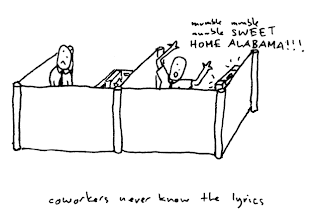 mumble mumble
mumble SWEET
HOME ALABAMA!!!
coworkers never know the lyrics